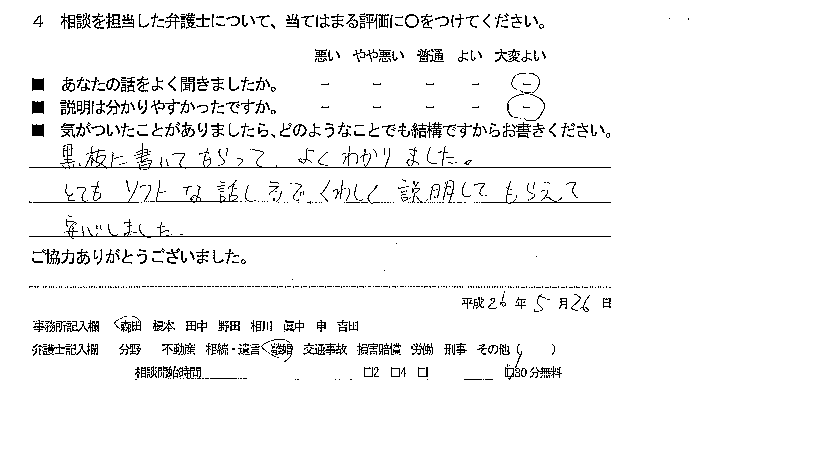 4 相談を担当した弁護士について、当てはまる評価に〇をつけてください。
悪い やや悪い 普通 よい 大変よい
■ あなたの話をよく聞きましたか。 - - - - -
■ 説明は分かりやすかったですか。 - - - - -
■ 気がついたことがありましたら、どのようなことでも結構ですからお書きください。
黒板に書いてもらって、よくわかりました。
とてもソフトな話し方でくわしく説明してもらえて
安心しました。
ご協力ありがとうございました。
平成26年5月26日
事務所記入欄 森田 榎本 田中 野田 相川 眞中 申 吉田
弁護士記入欄 分野 不動産 相続・遺言 離婚 交通事故 損害賠償 労働 刑事 その他( )
相談開始時間 □2 □4 □ □30分無料